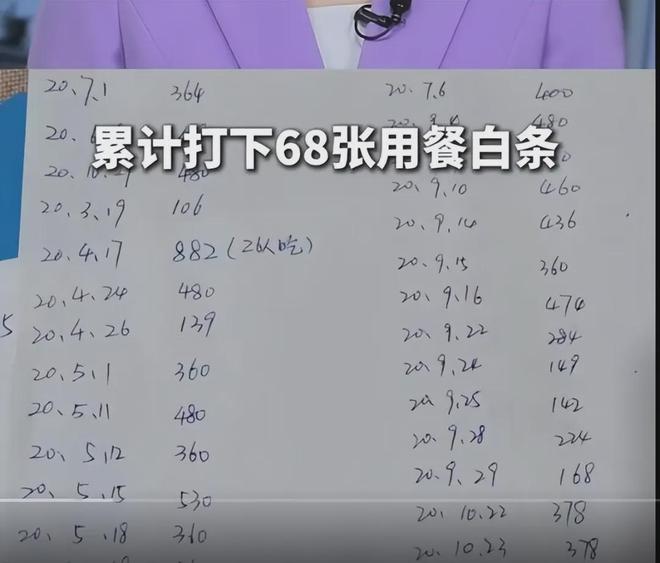 20、7、1 364
20、
20、10、29 480
20、3、19 106
20、4、17 882(26人吃)
20、4、24 480
5
20、4、26 139
20、5、1 360
20、5、11 480
20、5、12 360
20、5、15 530
20、5、18 360
20、7、6 400
20、9、9 480
20、9、10 460
20、9、14 436
20、9、15 360
20、9、16 474
20、9、22 284
20、9、24 149
20、9、25 142
20、9、28 224
20、9、29 168
20、10、22 378
20、10、23 378
累计打下68张用餐白条